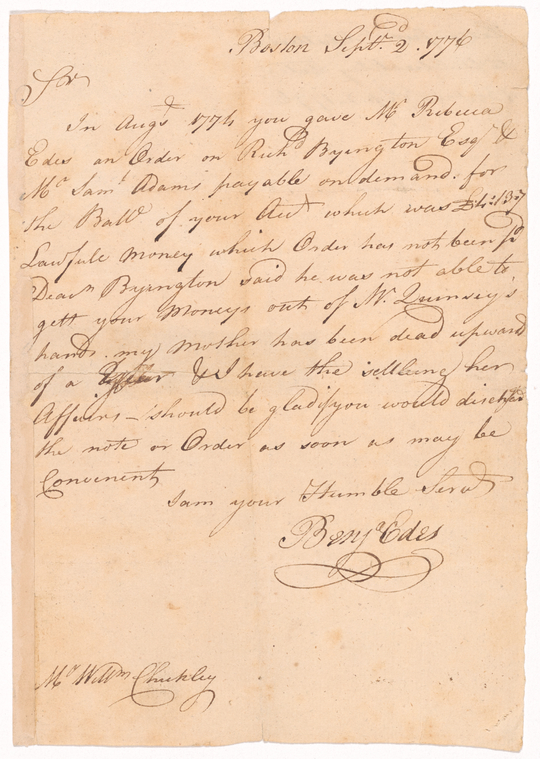 Boston Septr. 2d. 1776
Sir
In Augst 1774 you gave Mrs Rebecca
Edes an Order on Richd Byington Esqr &
Mr Saml Adams payable on demand. for
the Balle of your Acct which was £4:13:7
Lawfule Money which Order has not been pd
Deacn Byington said he was not able to
gett your Moneys out of Mr. Quinsey's
hands. my Mother has been dead upward
of a year & I have the settleing her
Affairs — should be glad if you would discharge
the note or Order as soon as may be
Convenent
I am your Humble Servt
Benjn Edes
Mr Willm Checkley